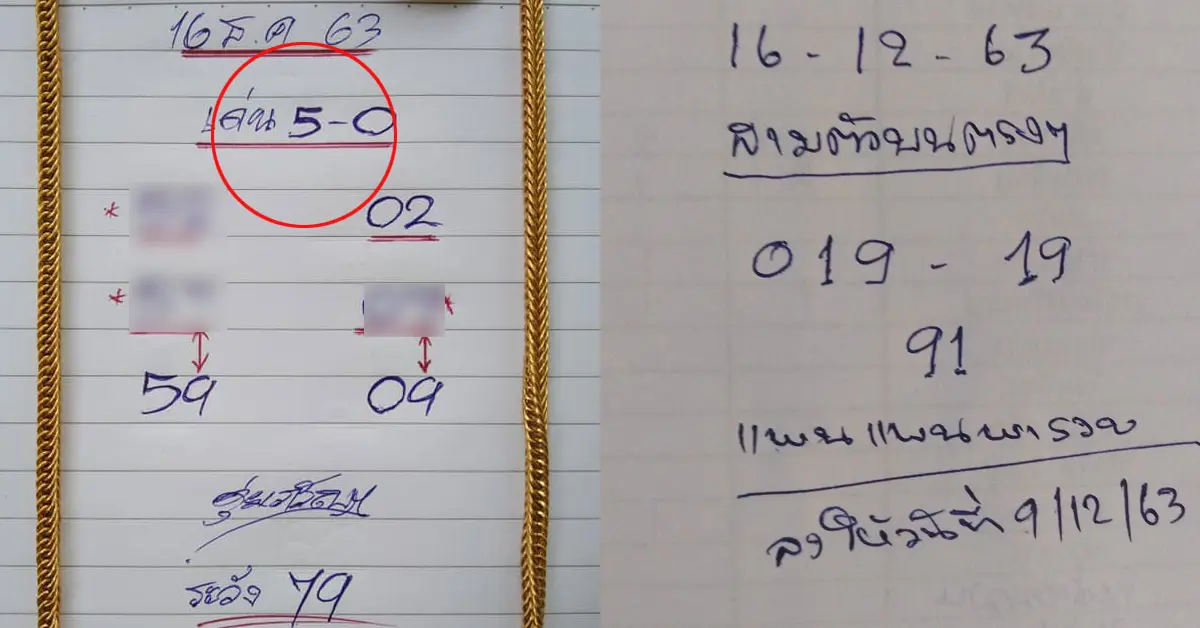 16 ธ.ค 63
เด่น 5-0
* 02
* *
59 09
ระวัง 79
16-12-63
สามตัวบนตรงๆ
019 - 19
91
แพนแพนพารวย
ลงให้วันที่ 9/12/63